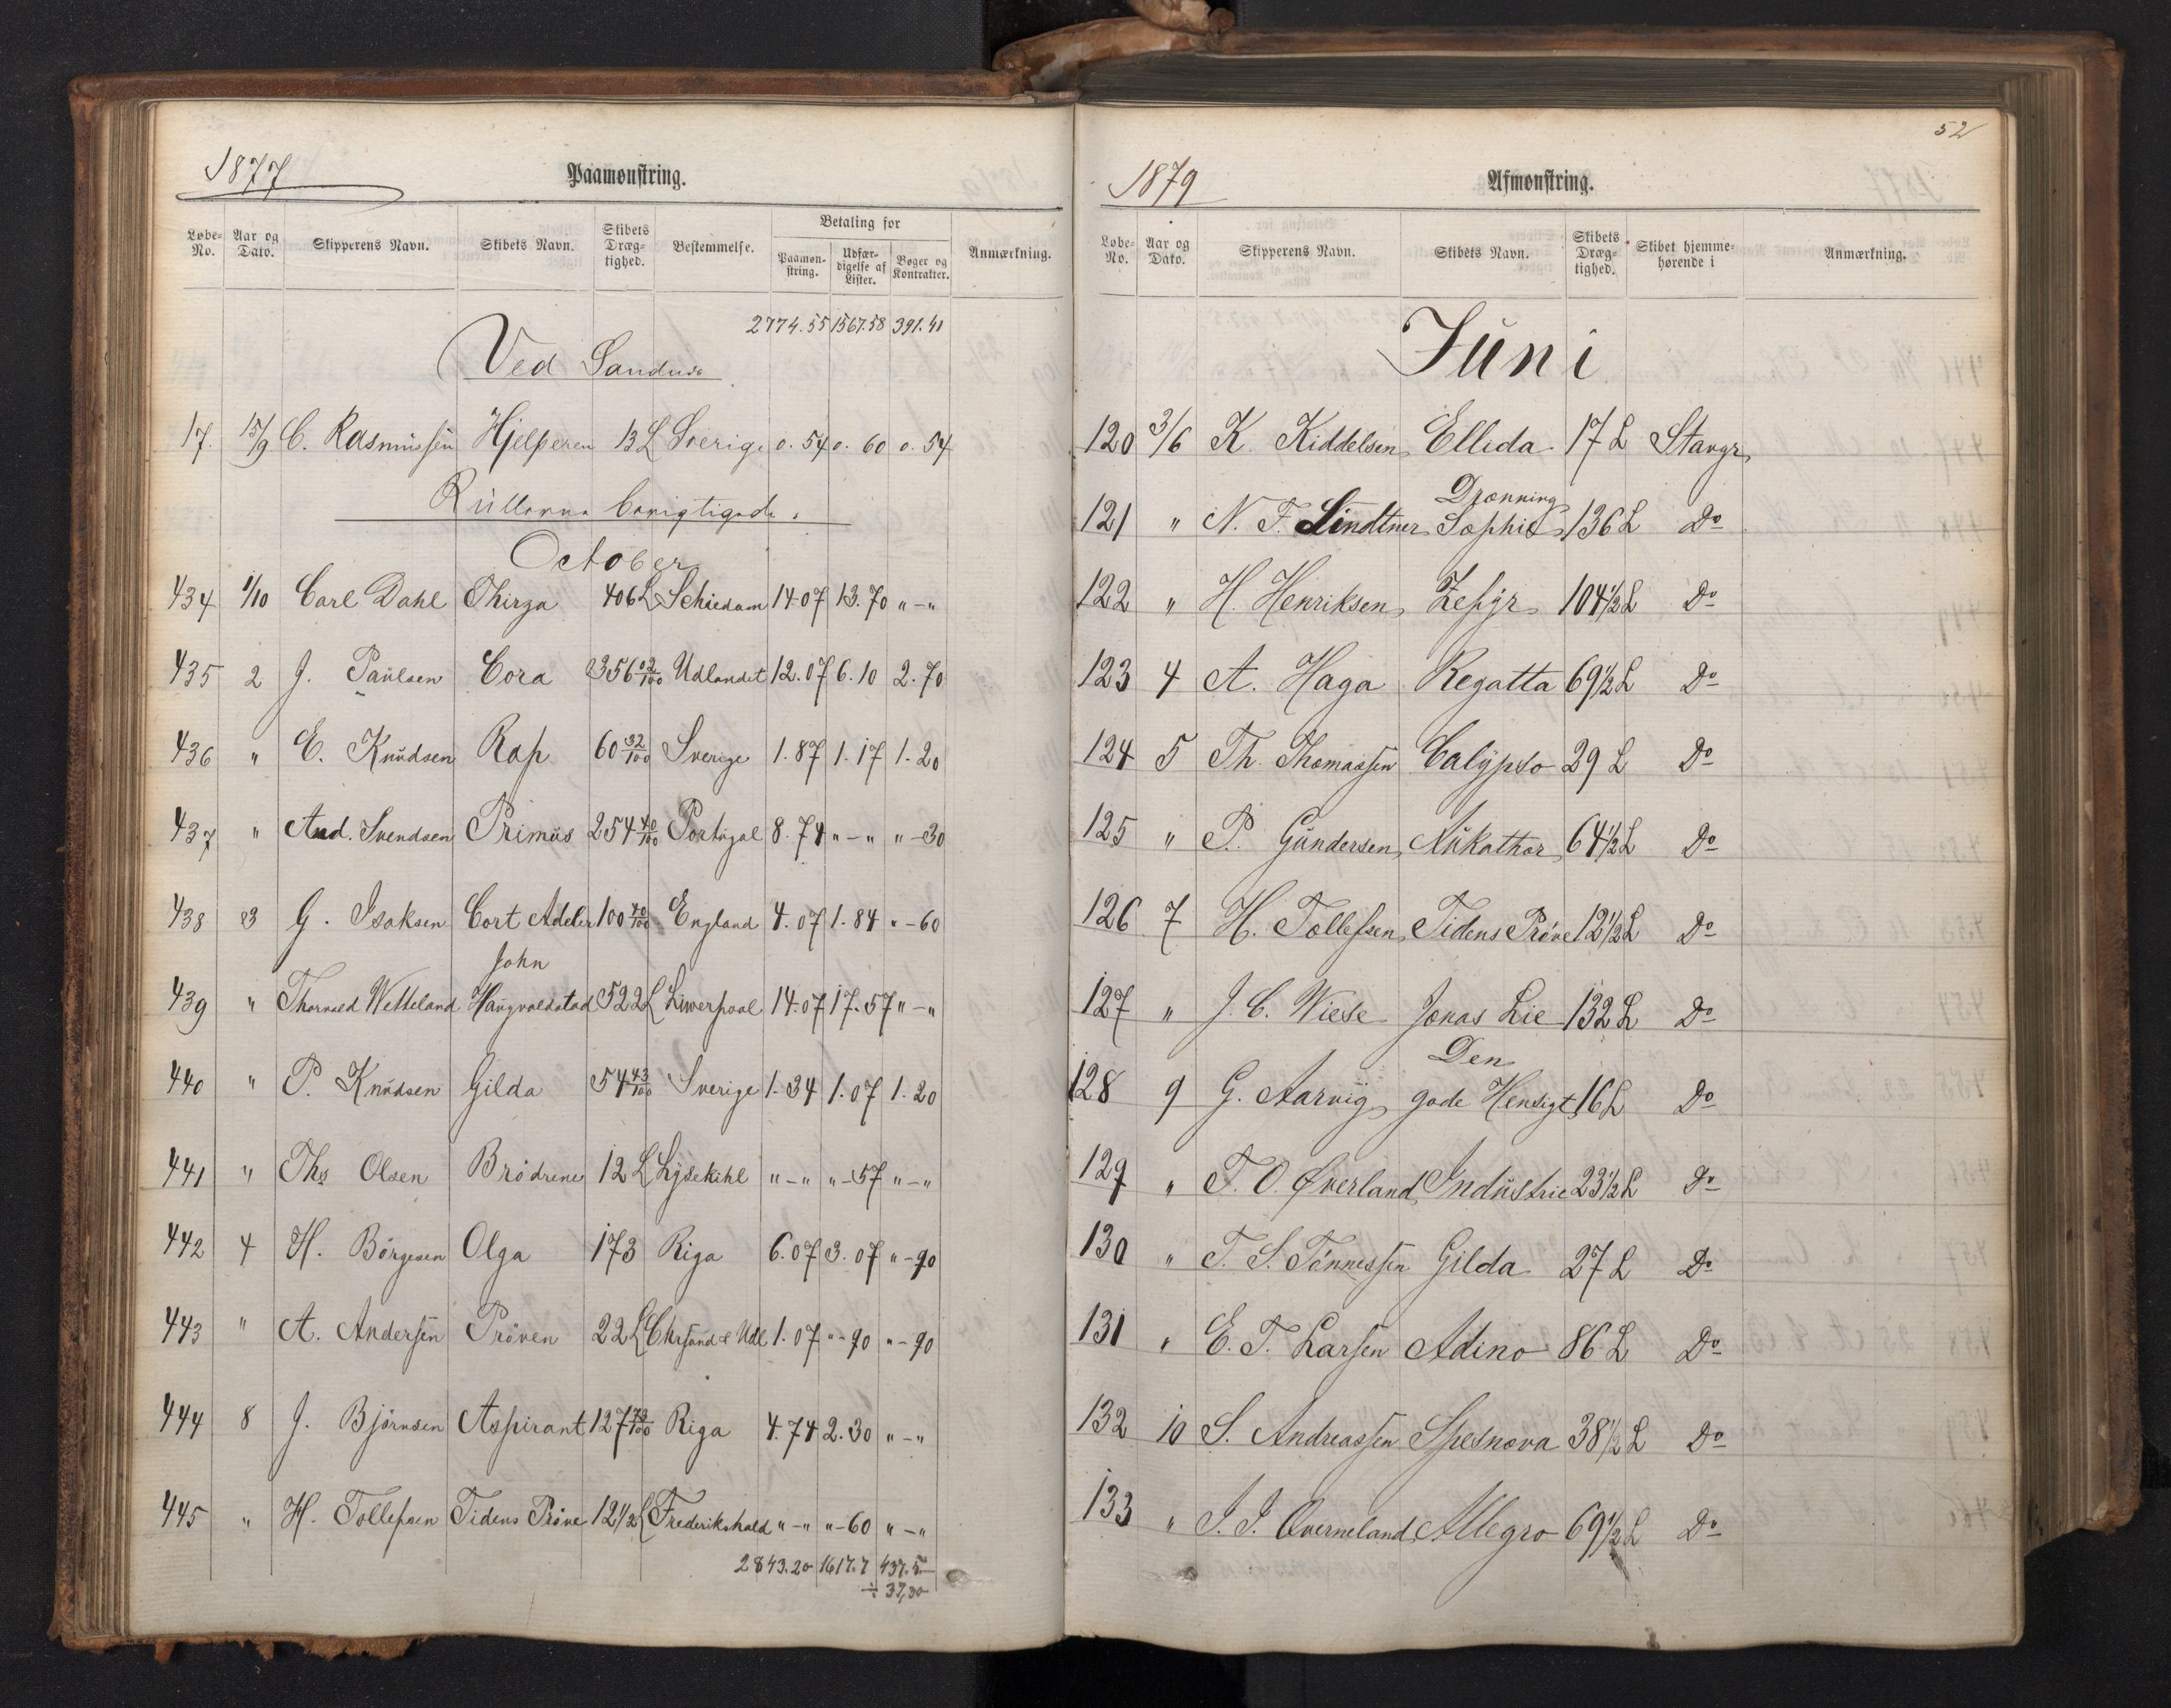 1877
Paamønstring.
Løbe-No. Aar og Dato. Skipperens Navn. Skibets Navn. Skibets Dræg-tighed. Bestemmelse. Betaling for Paamøn-string. Udfær-digelse af Lister. Bøger og Kontrakter. Anmærkning.
2774.55 1567.58 391.41
Ved
17. 15/9 C. Rasmussen Hjelperen 13 L Sverige 0.54 0.60 0.54
October
434 1/10 Carl Dahl Thirza 406 L Schiedam 14.07 13.70 „-„
435 2 J. Paulsen Cora 356 02/100 Udlandet 12.07 6.10 2.70
436 „ E. Knudsen Rap 60 32/100 Sverige 1.87 1.17 1.20
437 „ And. Svendsen Primus 254 40/100 Portugal 8.74 „-„ „-30
438 3 G. Isaksen Cort Adeler 100 40/100 England 4.07 1.84 „-60
John
439 „ Thorvald Wetteland Haugvaldstad 522 L Liwerpool 14.07 17.57 „-„
440 „ P. Knudsen Gilda 54 43/100 Sverige 1.34 1.07 1.20
441 „ Ths Olsen Brödrene 12 L Lysekihl „-„ „-57 „-„
442 4 H. Börgesen Olga 173 Riga 6.07 3.07 „-90
443 „ A. Andersen Pröven 22 L Chrsand & Udl. 1.07 „-90 „-90
444 8 J. Björnsen Aspirant 127 73/100 Riga 4.74 2.30 „-„
445 „ H. Tollefsen Tidens Pröve 12 1/2 L Frederikshald „-„ „-60 „-„
2843.20 1617.7 437.5
÷ 37,30
52
1879
Afmønstring.
Løbe-No. Aar og Dato. Skipperens Navn. Skibets Navn. Skibets Dræg-tighed. Skibet hjemme-hørende i Anmærkning.
Juni
120 3/6 K. Kiddelsen Ellida 17 L Stavgr
Dronning
121 „ N. F. Lindtner Sophie 136 L Do
122 „ H. Henriksen Zefyr 104 1/2 L Do
123 4 A. Haga Regatta 69 1/2 L Do
124 5 Th. Thomassen Calypso 29 L Do
125 „ P. Gundersen Aukathor 64 1/2 L Do
126 7 H. Tollefsen Tidens Pröve 12 1/2 L Do
127 „ J. C. Wiese Jonas Lie 132 L Do
Den
128 9 G. Aarvig gode Hensigt 16 L Do
129 „ T. O. Øverland Industrie 23 1/2 L Do
130 „ T. S. Tönnessen Gilda 27 L Do
131 „ E. T. Larsen Adino 86 L Do
132 10 S. Andreassen Spesnova 38 1/2 L Do
133 „ J. J. Qverneland Allegro 69 1/2 L Do